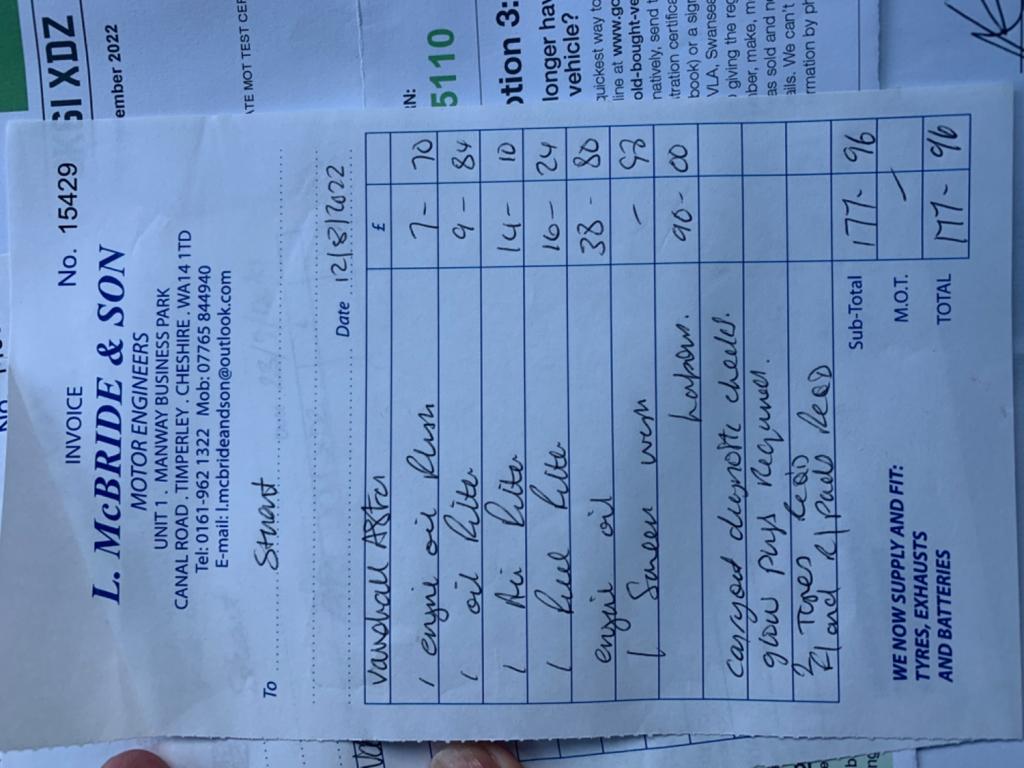 INVOICE No. 15429
L. McBRIDE & SON
MOTOR ENGINEERS
UNIT 1 . MANWAY BUSINESS PARK
CANAL ROAD . TIMPERLEY . CHESHIRE . WA14 1TD
Tel: 0161-962 1322 Mob: 07765 844940
E-mail: l.mcbrideandson@outlook.com
To Stuart
Date 12/8/2022
Vauxhall Astra £
1 engine oil flush 7-70
1 oil filter 9-84
1 Air filter 14-10
1 fuel filter 16-24
engine oil 38-80
1 Screen wash -
labour. 90-00
carryout diagnostic checks.
glow plugs required.
2 Tyres Read
F and R/pads Read
Sub-Total 177-96
M.O.T. -
TOTAL 177-96
WE NOW SUPPLY AND FIT:
TYRES, EXHAUSTS
AND BATTERIES
ember 2022
ATE MOT TEST CER
5110
otion 3:
longer hav
vehicle?
quickest way to
line at www.go
old-bought-ve
natively, send t
tration certifica
book) or a sign
VLA, Swansea
giving the reg
ber, make, m
as sold and n
ails. We can't
rmation by ph